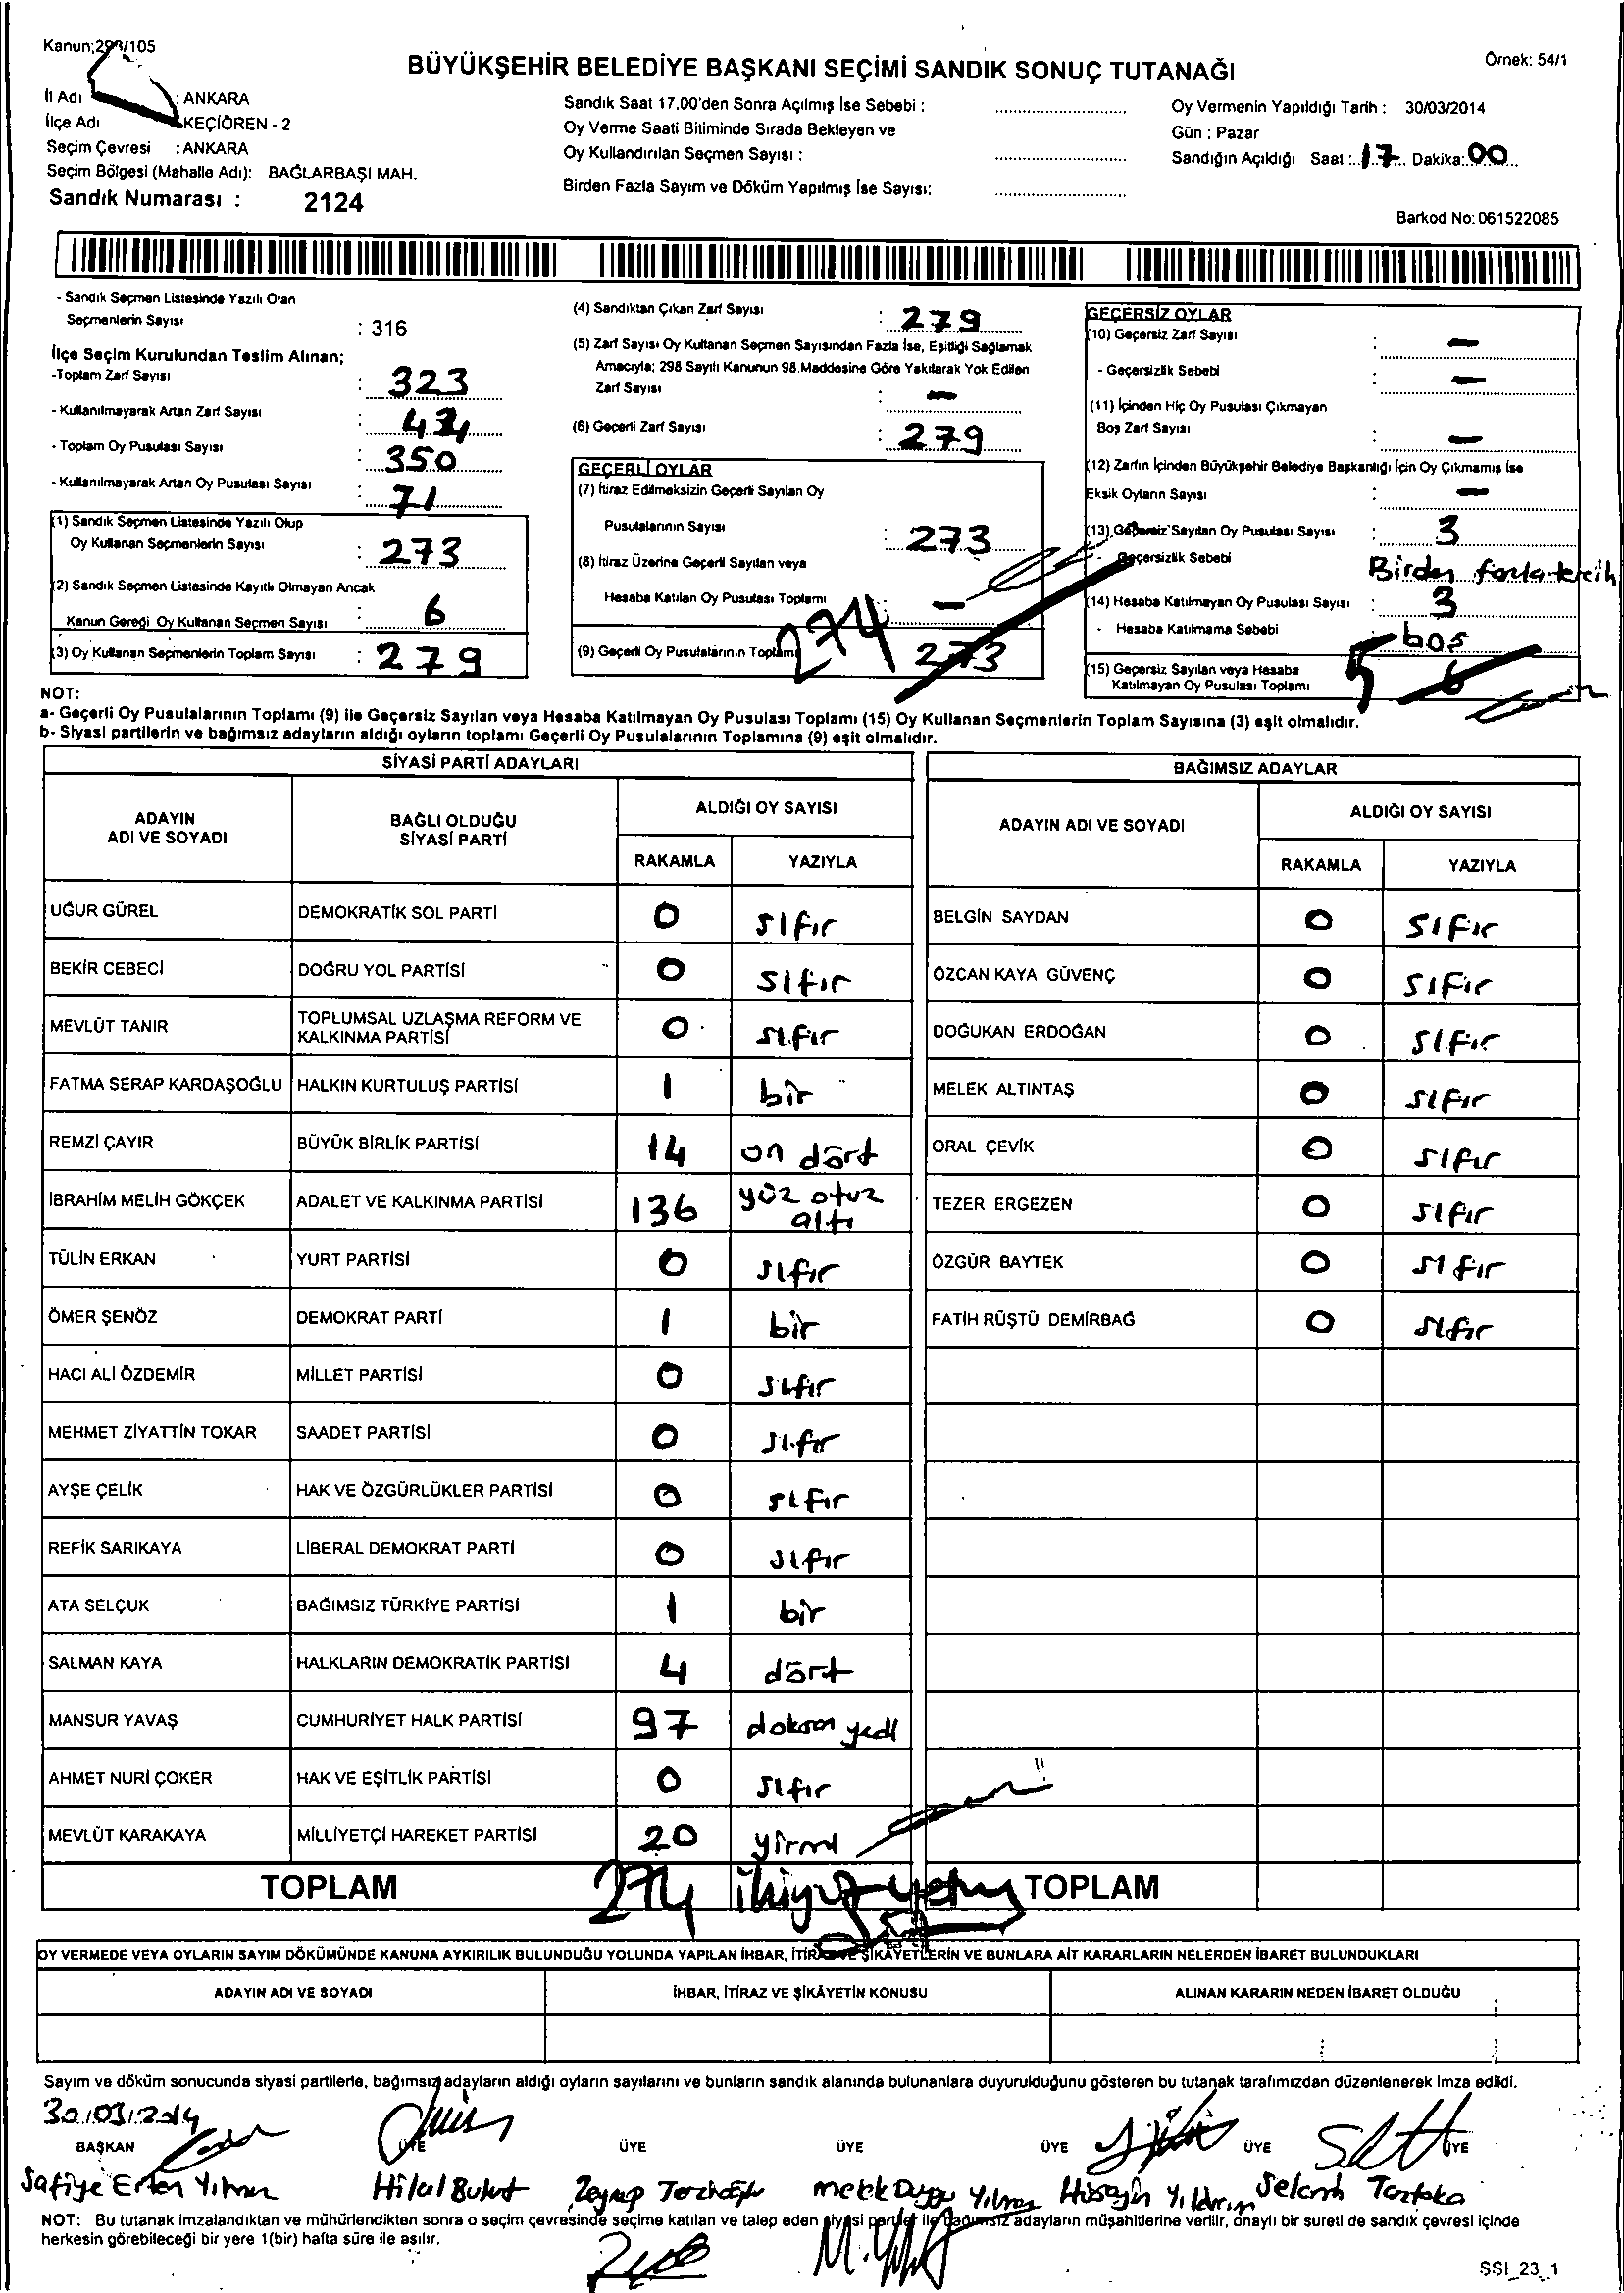 Kanun;298/105
BÜYÜKŞEHİR BELEDİYE BAŞKANI SEÇİMİ SANDIK SONUÇ TUTANAĞI
Örnek: 54/1
İl Adı : ANKARA
İlçe Adı KEÇİÖREN - 2
Seçim Çevresi : ANKARA
Seçim Bölgesi (Mahalle Adı): BAĞLARBAŞI MAH.
Sandık Numarası : 2124
Sandık Saat 17.00'den Sonra Açılmış İse Sebebi :
Oy Verme Saati Bitiminde Sırada Bekleyen ve
Oy Kullandırılan Seçmen Sayısı :
Birden Fazla Sayım ve Döküm Yapılmış İse Sayısı:
Oy Vermenin Yapıldığı Tarih : 30/03/2014
Gün : Pazar
Sandığın Açıldığı Saat : 17 Dakika: 00
Barkod No: 061522085
- Sandık Seçmen Listesinde Yazılı Olan
Seçmenlerin Sayısı : 316
İlçe Seçim Kurulundan Teslim Alınan;
-Toplam Zarf Sayısı : 323
- Kullanılmayarak Artan Zarf Sayısı :
- Toplam Oy Pusulası Sayısı : 350
- Kullanılmayarak Artan Oy Pusulası Sayısı : 71
(1) Sandık Seçmen Listesinde Yazılı Olup
Oy Kullanan Seçmenlerin Sayısı : 273
(2) Sandık Seçmen Listesinde Kayıtlı Olmayan Ancak
Kanun Gereği Oy Kullanan Seçmen Sayısı : 6
(3) Oy Kullanan Seçmenlerin Toplam Sayısı : 279
(4) Sandıktan Çıkan Zarf Sayısı : 279
(5) Zarf Sayısı Oy Kullanan Seçmen Sayısından Fazla İse, Eşitliği Sağlamak
Amacıyla; 298 Sayılı Kanunun 98.Maddesine Göre Yakılarak Yok Edilen
Zarf Sayısı : —
(6) Geçerli Zarf Sayısı : 279
GEÇERLİ OYLAR
(7) İtiraz Edilmeksizin Geçerli Sayılan Oy
Pusulalarının Sayısı : 273
(8) İtiraz Üzerine Geçerli Sayılan veya
Hesaba Katılan Oy Pusulası Toplamı : —
(9) Geçerli Oy Pusulalarının Toplamı 274 273
GEÇERSİZ OYLAR
(10) Geçersiz Zarf Sayısı : —
- Geçersizlik Sebebi : —
(11) İçinden Hiç Oy Pusulası Çıkmayan
Boş Zarf Sayısı : —
(12) Zarfın İçinden Büyükşehir Belediye Başkanlığı İçin Oy Çıkmamış İse
Eksik Oyların Sayısı : —
(13) Geçersiz Sayılan Oy Pusulası Sayısı : 3
- Geçersizlik Sebebi Birden fazla tercih
(14) Hesaba Katılmayan Oy Pusulası Sayısı : 3
- Hesaba Katılmama Sebebi boş
(15) Geçersiz Sayılan veya Hesaba
Katılmayan Oy Pusulası Toplamı 5 6
NOT:
a- Geçerli Oy Pusulalarının Toplamı (9) ile Geçersiz Sayılan veya Hesaba Katılmayan Oy Pusulası Toplamı (15) Oy Kullanan Seçmenlerin Toplam Sayısına (3) eşit olmalıdır.
b- Siyasi partilerin ve bağımsız adayların aldığı oyların toplamı Geçerli Oy Pusulalarının Toplamına (9) eşit olmalıdır.
SİYASİ PARTİ ADAYLARI
ADAYIN ADI VE SOYADI
BAĞLI OLDUĞU SİYASİ PARTİ
ALDIĞI OY SAYISI
RAKAMLA YAZIYLA
UĞUR GÜREL DEMOKRATİK SOL PARTİ 0 sıfır
BEKİR CEBECİ DOĞRU YOL PARTİSİ 0 sıfır
MEVLÜT TANIR TOPLUMSAL UZLAŞMA REFORM VE KALKINMA PARTİSİ 0 sıfır
FATMA SERAP KARDAŞOĞLU HALKIN KURTULUŞ PARTİSİ 1 bir
REMZİ ÇAYIR BÜYÜK BİRLİK PARTİSİ 14 on dört
İBRAHİM MELİH GÖKÇEK ADALET VE KALKINMA PARTİSİ 136 yüz otuz altı
TÜLİN ERKAN YURT PARTİSİ 0 sıfır
ÖMER ŞENÖZ DEMOKRAT PARTİ 1 bir
HACI ALİ ÖZDEMİR MİLLET PARTİSİ 0 sıfır
MEHMET ZİYATTİN TOKAR SAADET PARTİSİ 0 sıfır
AYŞE ÇELİK HAK VE ÖZGÜRLÜKLER PARTİSİ 0 sıfır
REFİK SARIKAYA LİBERAL DEMOKRAT PARTİ 0 sıfır
ATA SELÇUK BAĞIMSIZ TÜRKİYE PARTİSİ 1 bir
SALMAN KAYA HALKLARIN DEMOKRATİK PARTİSİ 4 dört
MANSUR YAVAŞ CUMHURİYET HALK PARTİSİ 97 doksan yedi
AHMET NURİ ÇOKER HAK VE EŞİTLİK PARTİSİ 0 sıfır
MEVLÜT KARAKAYA MİLLİYETÇİ HAREKET PARTİSİ 20 yirmi
TOPLAM 274
BAĞIMSIZ ADAYLAR
ADAYIN ADI VE SOYADI
ALDIĞI OY SAYISI
RAKAMLA YAZIYLA
BELGİN SAYDAN 0 sıfır
ÖZCAN KAYA GÜVENÇ 0 sıfır
DOĞUKAN ERDOĞAN 0 sıfır
MELEK ALTINTAŞ 0 sıfır
ORAL ÇEVİK 0 sıfır
TEZER ERGEZEN 0 sıfır
ÖZGÜR BAYTEK 0 sıfır
FATİH RÜŞTÜ DEMİRBAĞ 0 sıfır
TOPLAM
OY VERMEDE VEYA OYLARIN SAYIM DÖKÜMÜNDE KANUNA AYKIRILIK BULUNDUĞU YOLUNDA YAPILAN İHBAR, İTİRAZ VE ŞİKAYETLERİN VE BUNLARA AİT KARARLARIN NELERDEN İBARET BULUNDUKLARI
ADAYIN ADI VE SOYADI
İHBAR, İTİRAZ VE ŞİKÂYETİN KONUSU
ALINAN KARARIN NEDEN İBARET OLDUĞU
Sayım ve döküm sonucunda siyasi partilerle, bağımsız adayların aldığı oyların sayılarını ve bunların sandık alanında bulunanlara duyurulduğunu gösteren bu tutanak tarafımızdan düzenlenerek imza edildi.
30/03/2014
BAŞKAN ÜYE ÜYE ÜYE ÜYE ÜYE ÜYE
Safiye Erten Yılmaz Hilal Bulut Zeynep Melek Duygu Yılmaz Hüseyin Yıldırım
NOT: Bu tutanak imzalandıktan ve mühürlendikten sonra o seçim çevresinde seçime katılan ve talep eden siyasi partiler ile bağımsız adayların müşahitlerine verilir, onaylı bir sureti de sandık çevresi içinde
herkesin görebileceği bir yere 1(bir) hafta süre ile asılır.
SSI_23_1